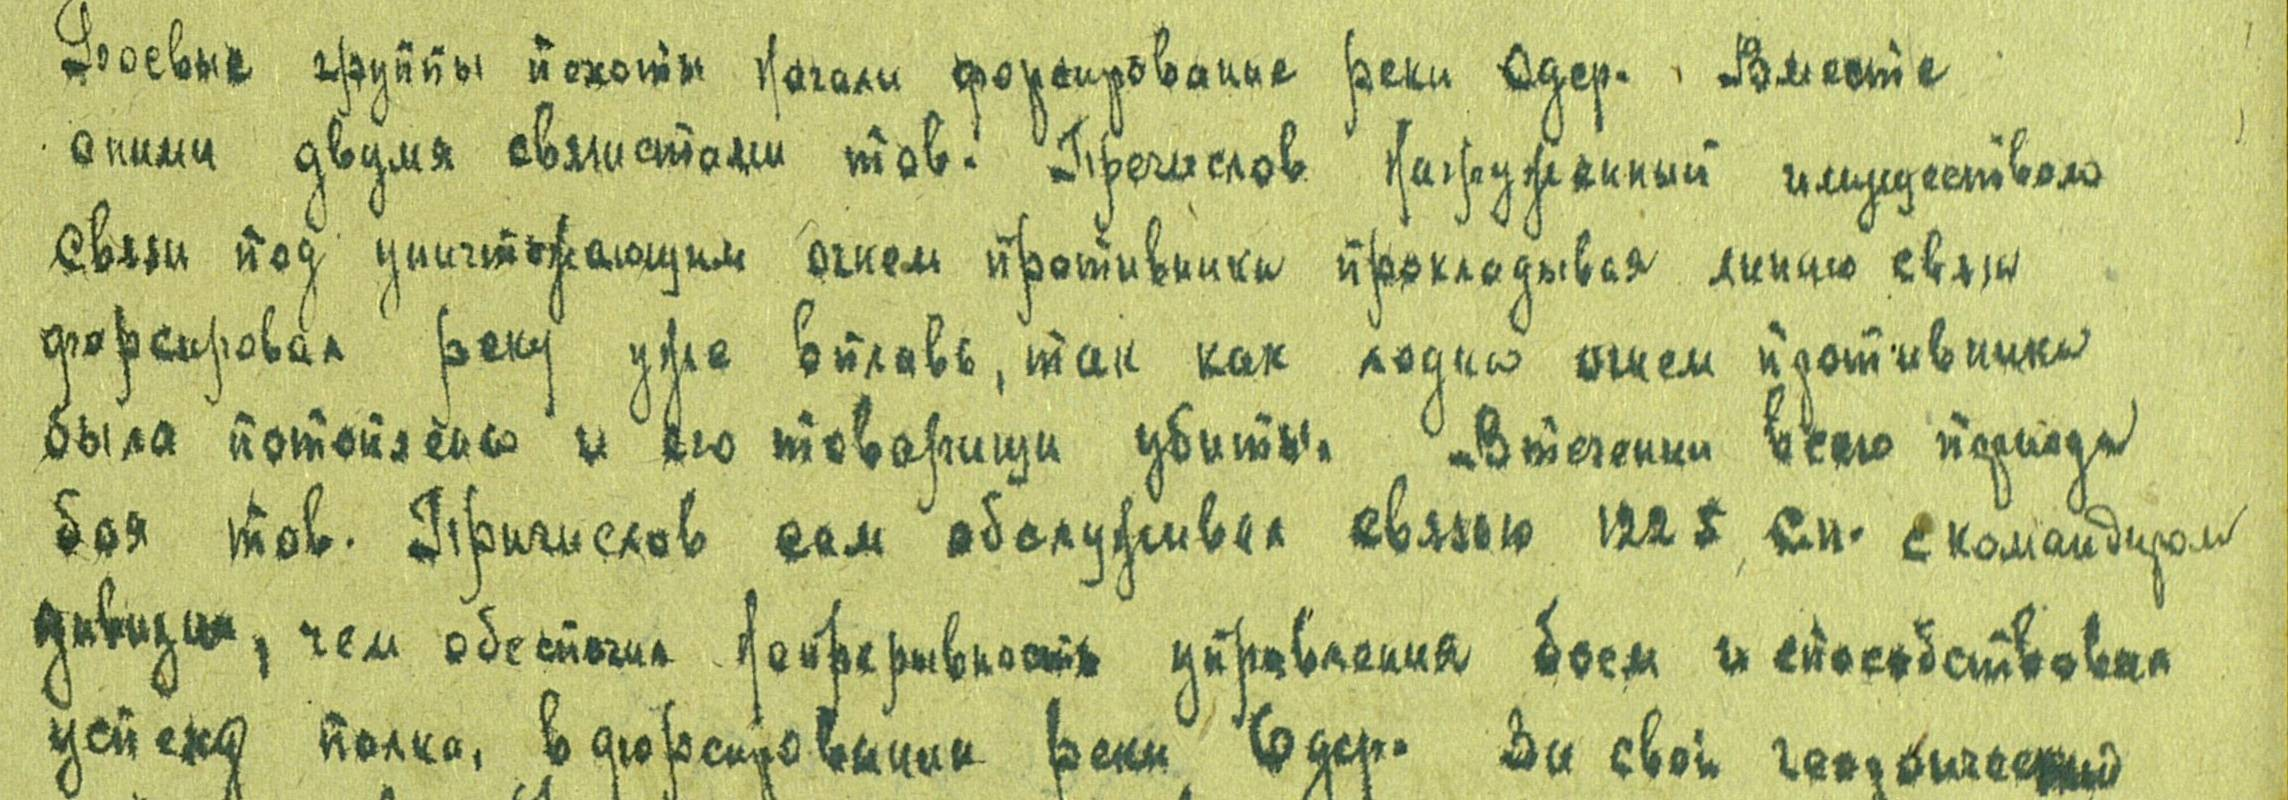 Боевые группы пехоты начали форсирование реки Одер. Вместе
сними двумя связистами тов. Пречислов нагруженный имуществом
связи под уничтожающим огнем противника прокладывая линию связи
форсировал реку уже вплавь, так как лодка огнем противника
была потоплена и его товарищи убиты. Втечении всего периода
боя тов. Причислов сам обслуживал связью 1225 Сп. с командиром
дивизии, чем обеспечил непрерывность управления боем и способствовал
успеху полка, в форсировании реки Одер. За свой героический